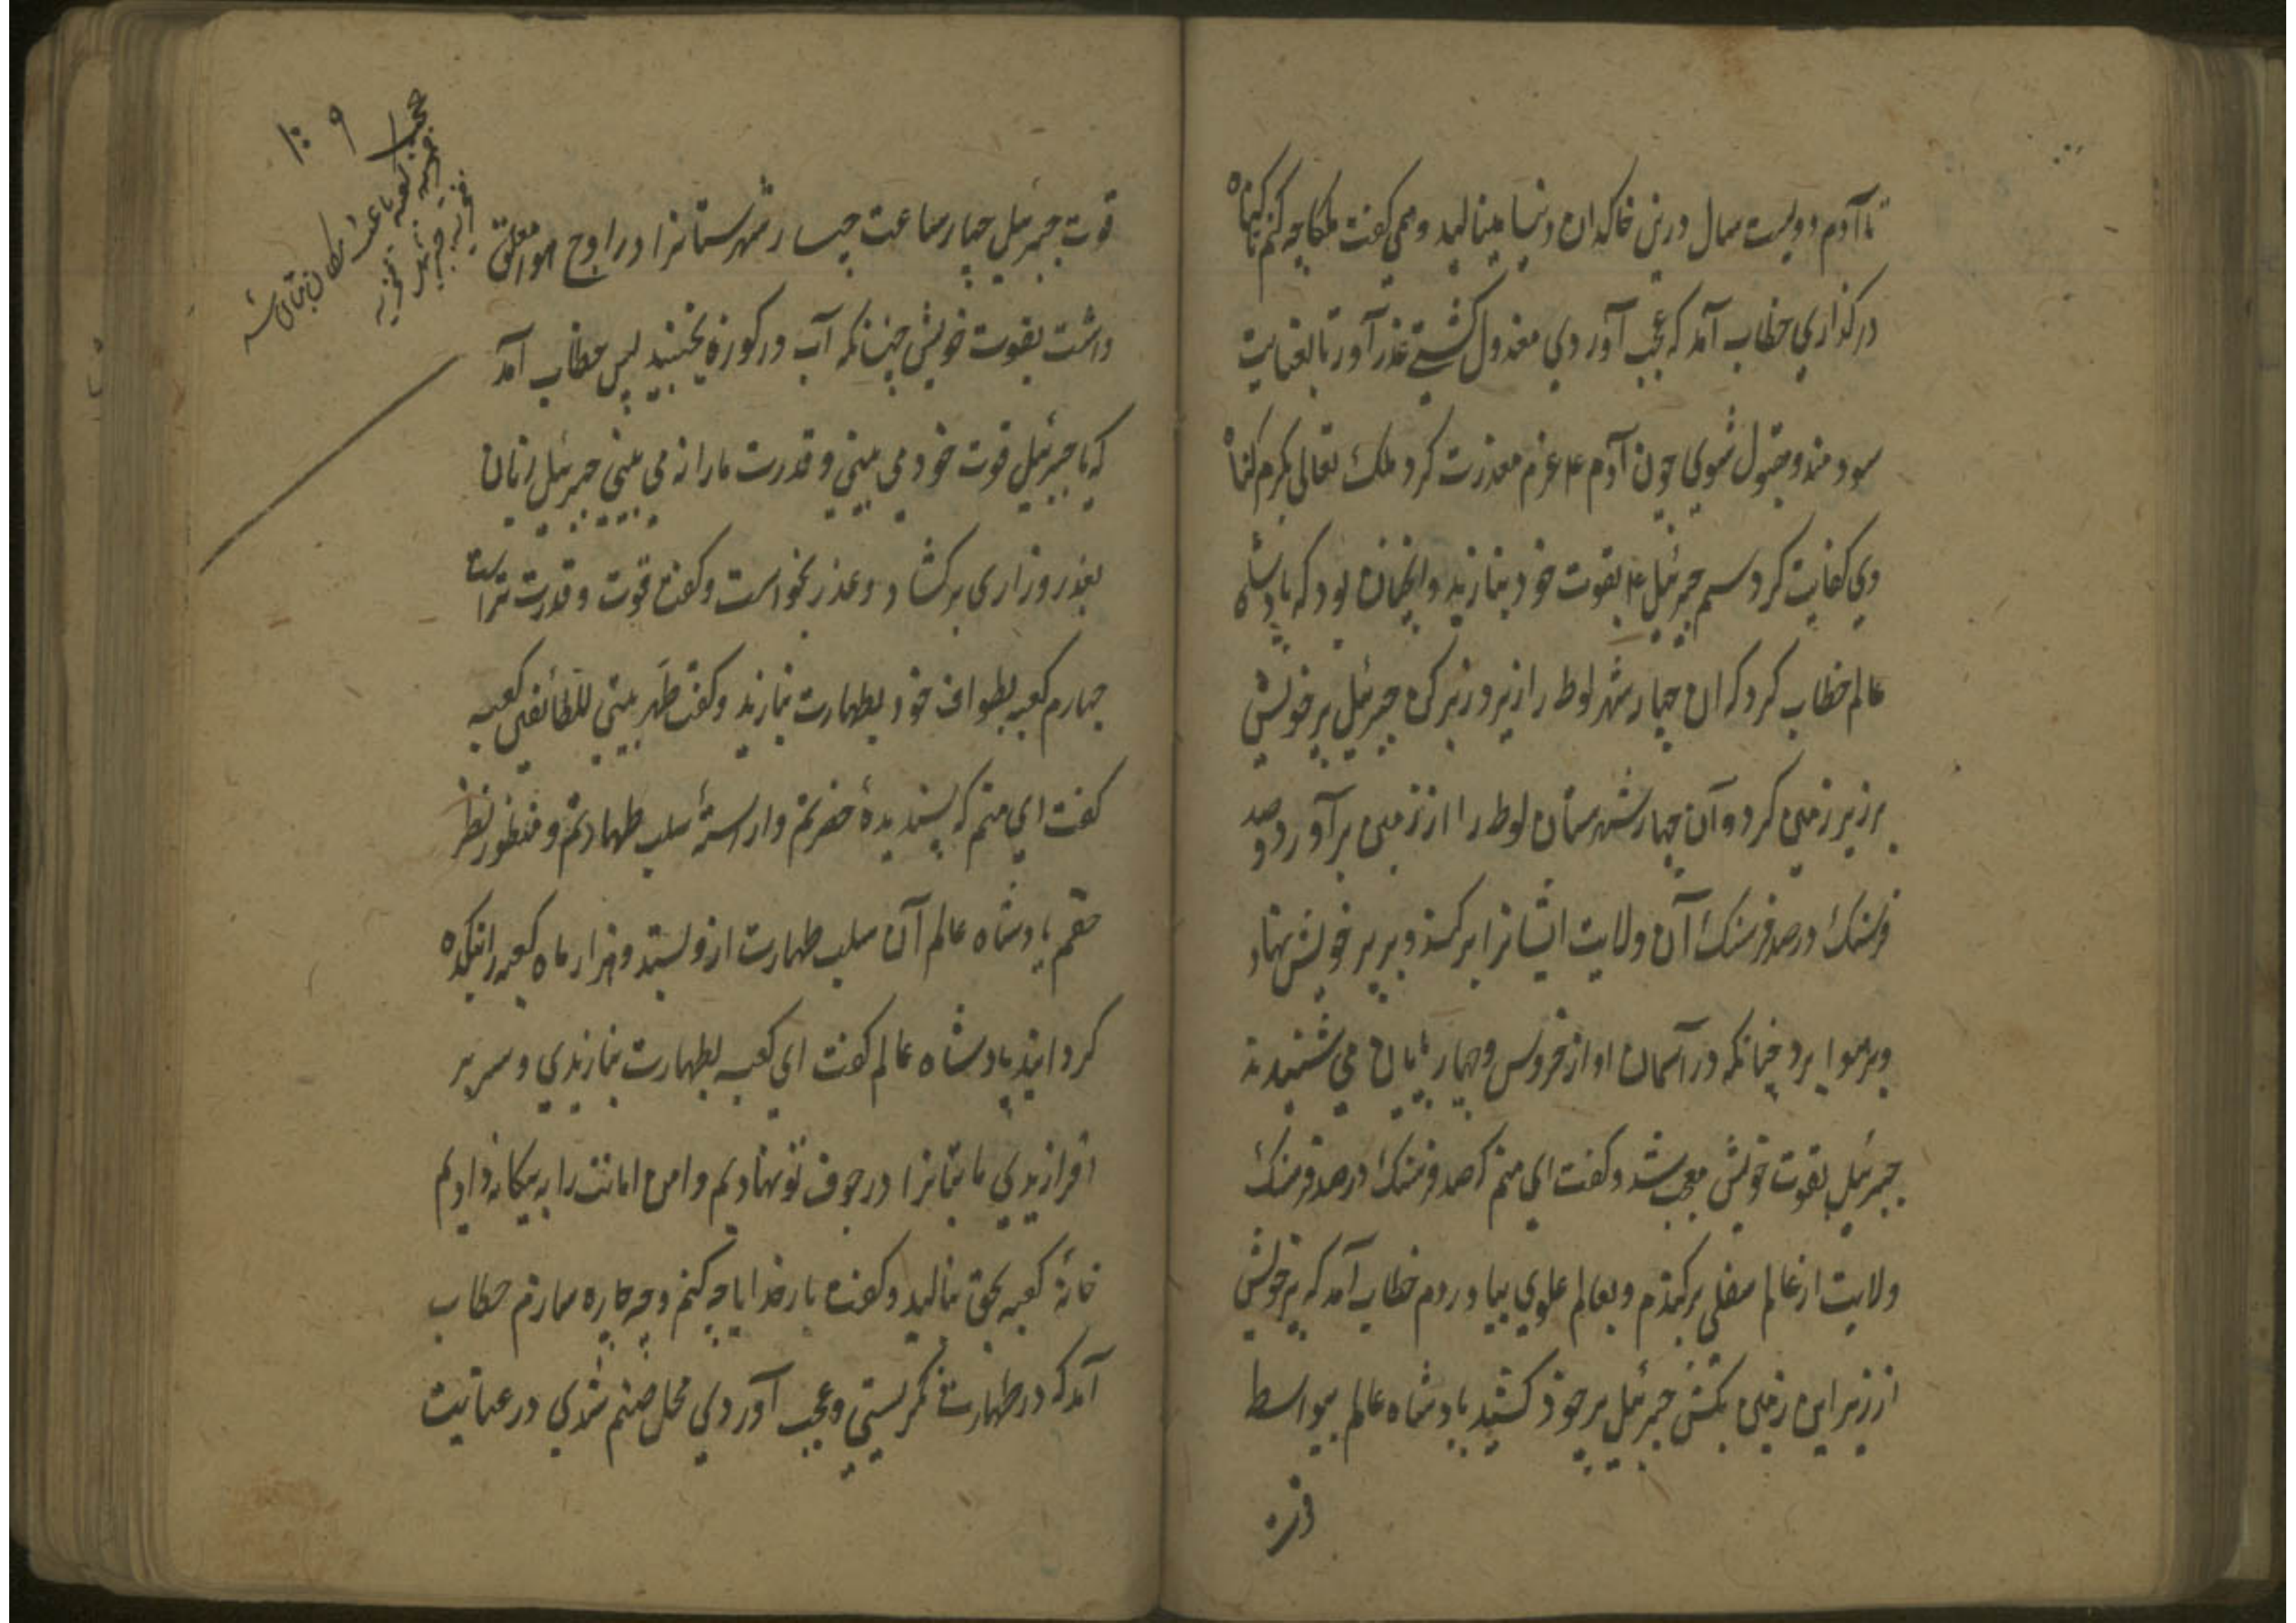 تا آدم دویست سال درین خاکدان دنیا مینالید و همی کفت ملکا چه کنم تا کناه
درکذاری خطاب آمد که عجب آوردی معذول کشتی عذر آور تا بعنایت
سودمند و مقبول شوی چون آدم ۴ عزم معذرت کرد ملک تعالی بکرم کناه
وی کفایت کرد سیم جبرئیل ۴ بقوت خود بنازید و انچنان بود که پادشاه
عالم خطاب کرد که آن چهار شهر لوط را زیر و زبر کن جبرئیل پر خویش
بر زیر زمین کرد و آن چهار شهرستان لوط را از زمین برآورد و صد
فرسنک در صد فرسنک آن ولایت ایشانرا برکند و بر پر خویش نهاد
و بر هوا برد چنانکه در آسمان آواز خروس و چهار پایان می شنیدند
جبرئیل بقوت خویش معجب شد و کفت این منم که صد فرسنک در صد فرسنک
ولایت از عالم سفلی برکندم و بعالم علوی بیاوردم خطاب آمد که پر خویش
از زیر این زمین بکش جبرئیل پر خود کشید پادشاه عالم بیواسطه
قوت جبرئیل چهار ساعت چهار شهرستانرا در اوج هوا معلق
داشت بقوت خویش چنانکه آب در کوزه نجنبید پس خطاب آمد
که یا جبرئیل قوت خود می بینی و قدرت ما را نه می بینی جبرئیل زبان
بعذر و زاری برکشاد و عذر بخواست و کفت قوت و قدرت تراست
چهارم کعبه بطواف خود بطهارت بنازید و کفت طهر بیتی للطائفین کعبه
کفت این منم که پسندیدهٔ حضرتم و آراستهٔ سلب طهارتم و منظور نظر
حقم پادشاه عالم آن سلب طهارت ازو بستد و هزار ماه کعبه را بتکده
کردانید پادشاه عالم کفت ای کعبه بطهارت بنازیدی و سر بر
افرازیدی ما بتانرا در جوف تو نهادیم و امن امانت را به بیکانه دادیم
خانهٔ کعبه بحق بنالید و کفت بار خدایا چه کنم و چه چاره سازم خطاب
آمد که در طهارت نکرستی و عجب آوردی محل صنم شدی در عنایت